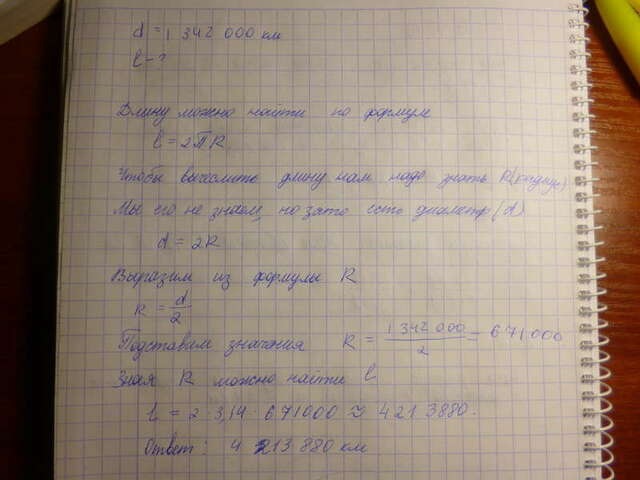 d = 1 342 000 км
l - ?
Длину можно найти по формуле
l = 2ПR
Чтобы вычеслить длину нам надо знать R(радиус)
Мы его не знаем, но зато есть диаметр (d)
d = 2R
Выразим из формулы R
R = d/2
Подставим значения R = 1 342 000/2 = 671000
Зная R можно найти l
l = 2 · 3,14 · 671000 ≈ 4213880.
Ответ: 4 213 880 км